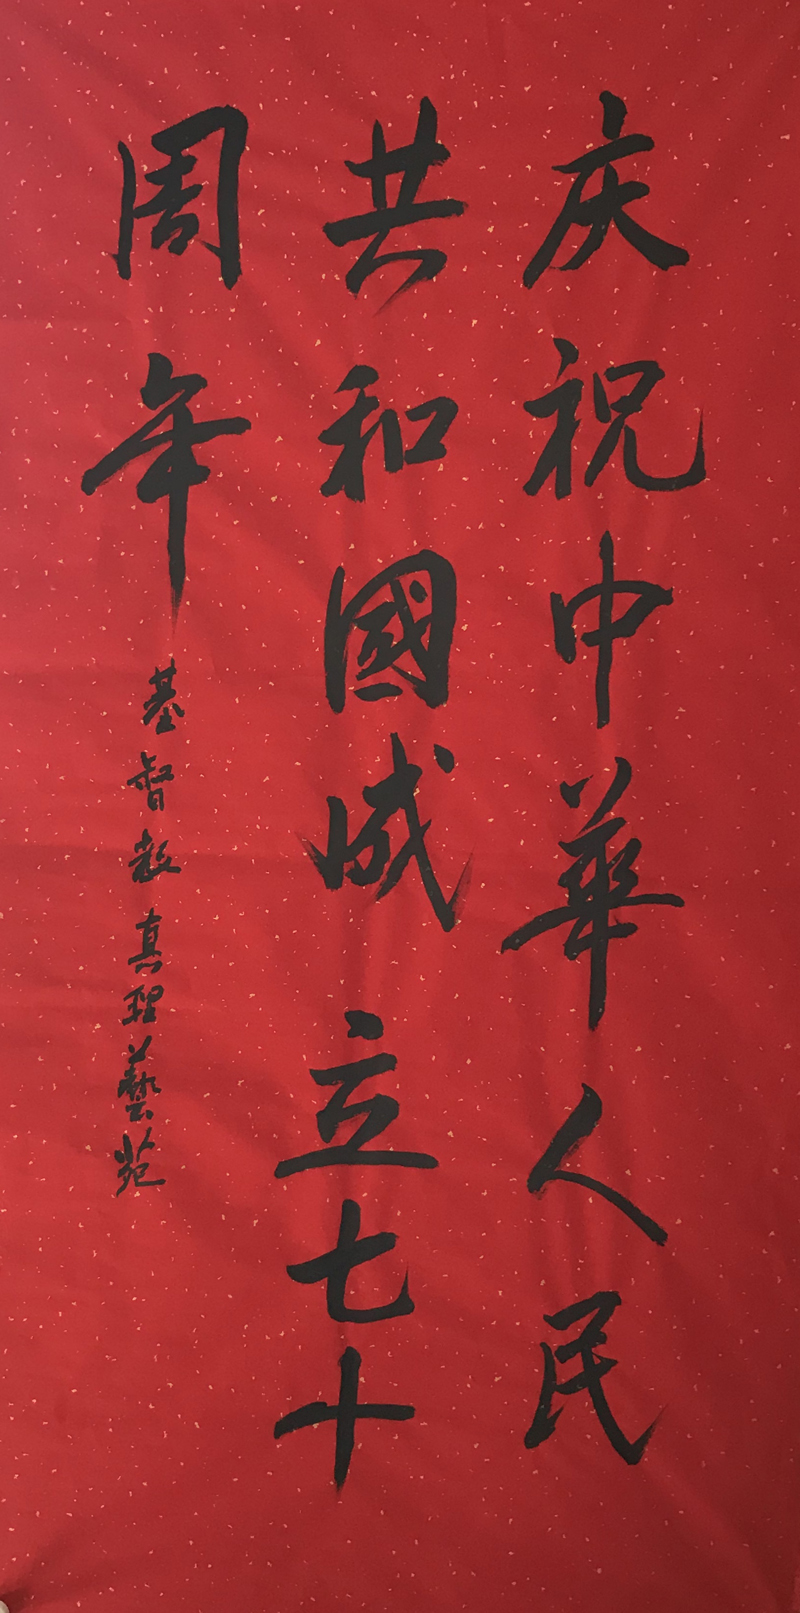 庆祝中華人民
共和國成立七十
周年
基督教真理藝苑